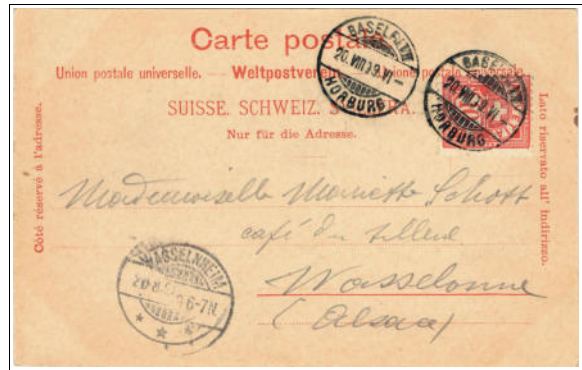 Carte postale.
Union postale universelle. — Weltpostverein. — Unione postale universale.
SUISSE. SCHWEIZ. SVIZZERA.
Nur für die Adresse.
Côté réservé à l'adresse.
Lato riservato all' indirizzo.
BASEL
20.VIII
HORBURG
BASEL
20.VIII
HORBURG
Mademoiselle Mariette Schott
café du tilleul
Wasselonne
(Alsace)
WASSELNHEIM
6-7N.